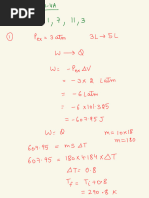 1, 7, 11, 3
① Pex = 3 atm 3L → 5L
W ⟶ Q
W = - Pex ΔV
= - 3 x 2 L atm
= - 6 L atm
= - 6 x 101.325
= - 607.95 J
W → Q m = 10 x 18
607.95 = m S ΔT m = 180
607.95 = 180 x 4.184 x ΔT
ΔT = 0.8
Tf = Ti + 0.8
= 290.8 K